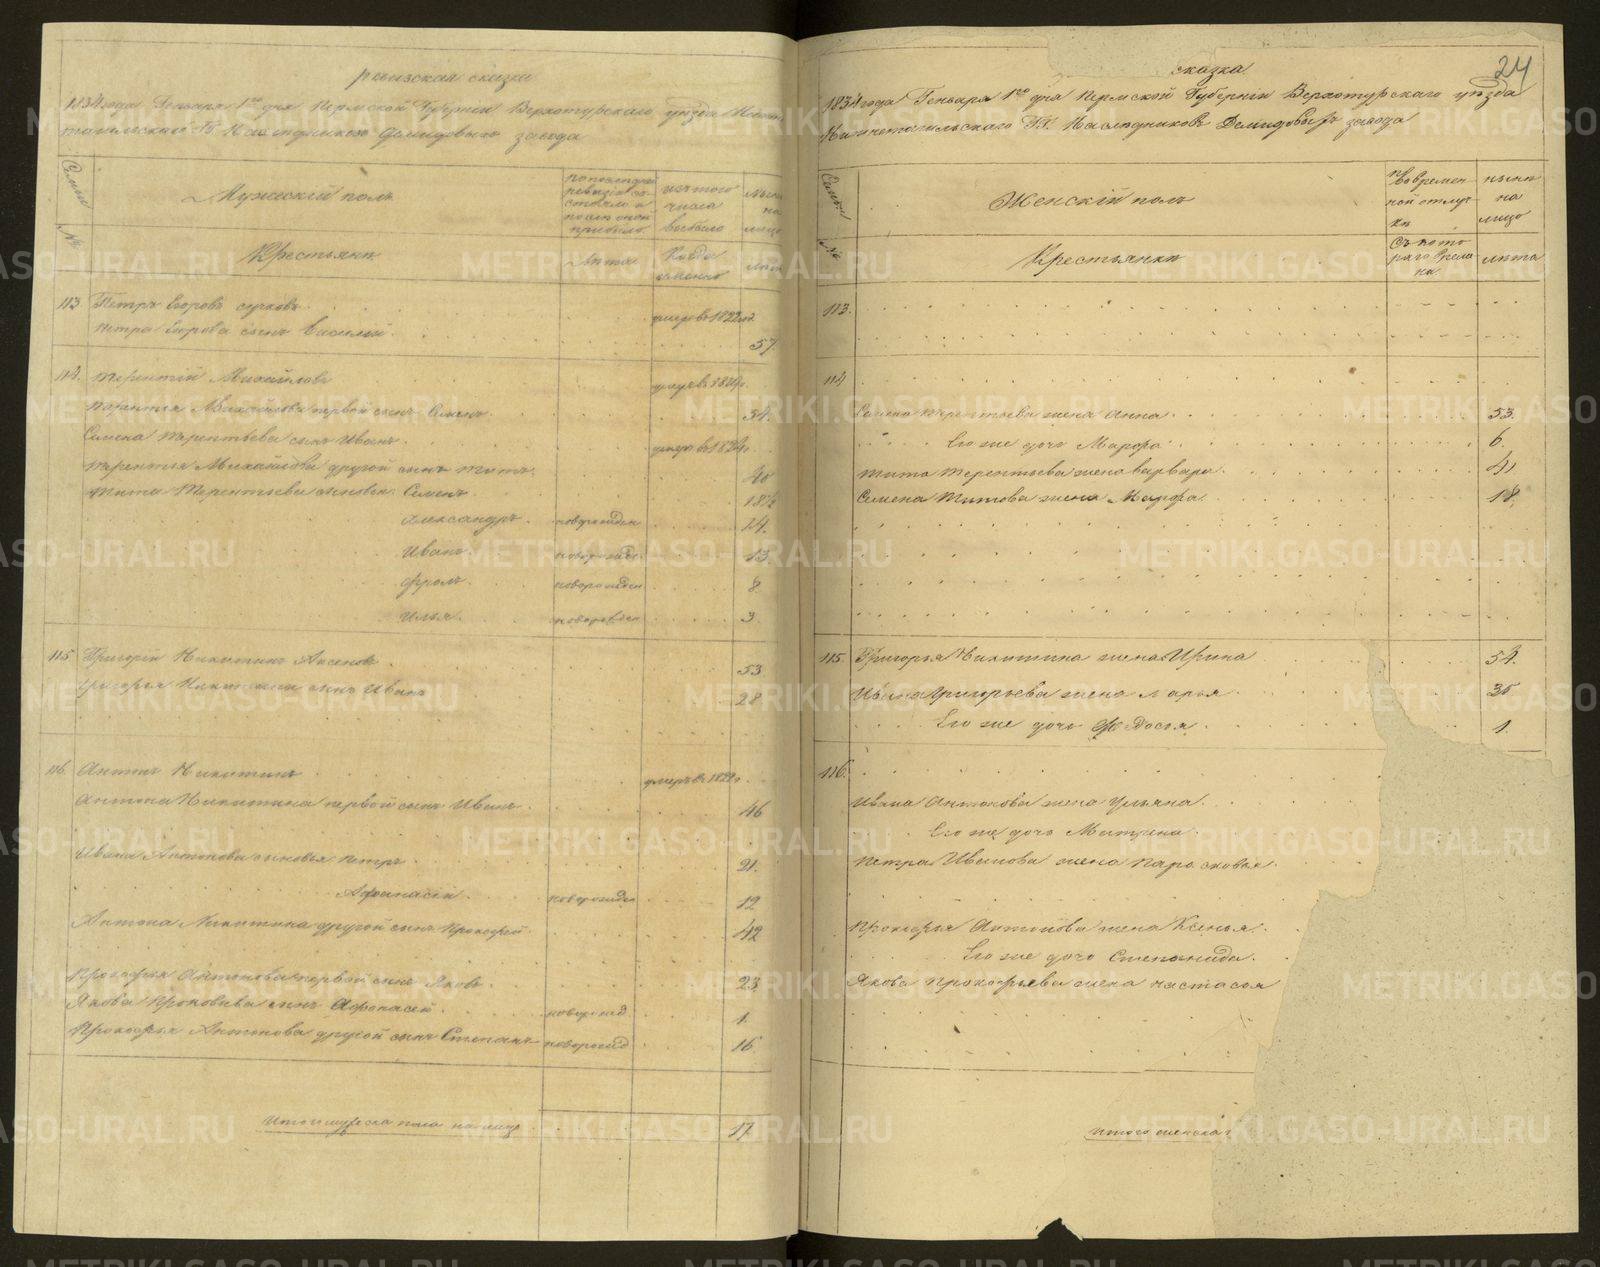 ревизская сказка
1834 года Генваря 1го дня Пермской Губернiи Верхотурскаго уѣзда Нижне
тагильскаго ГГ. Наслѣдниковъ Демидовыхъ завода
Семьи
№
Мужескiй полъ
по послѣдней
ревизiи со-
стояло и
послѣ оной
прибыло
изъ того
числа
выбыло
Нынѣ
на
лицо
Крестьяне
лѣта
Когда
именно
лѣта
113 Петръ Егоровъ сучковъ умеръ въ 1822
Петра Егорова сынъ Василiй 57.
114. Терентiй Михайловъ умеръ въ 1824г.
Терентья Михайлова первой сынъ Семенъ 54.
Семена Терентьева сынъ Иванъ умеръ въ 1824г.
Терентья Михайлова другой сынъ Титъ 40
Тита Терентьева сыновья Семенъ 18½
Александръ новорожден 14.
Иванъ новорожде 13.
Фролъ новорожден 8
Илья новорожден 3
115 Григорiй Никитинъ Аксеновъ 53
Григорья Никитина сынъ Иванъ 28
116. Антонъ Никитинъ умеръ въ 1822г.
Антона Никитина первой сынъ Иванъ 46
Ивана Антонова сыновья Петръ 21.
Афонасiй новорожден 12
Антона Никитина другой сынъ Прокофей 42
Прокофья Антонова первой сынъ Яковъ 23
Якова Прокофьева сынъ Афонасей новорожд 1.
Прокофья Антонова другой сынъ Степанъ новорожд 16
Итого мужеска пола на лицо 17.
24
сказка
1834 года Генваря 1го дня Пермской Губернiи Верхотурскаго уѣзда
Нижнетагильскаго ГГ. Наслѣдниковъ Демидовыхъ завода
Семьи
№
Женскiй полъ
Во времен-
ной отлуч-
кѣ
нынѣ
на
лицо
Крестьянки
Съ кото
раго време
ни
лѣта
113.
114
Семена Терентьева жена Анна 53.
Его же дочь Марфа 6.
Тита Терентьева жена Варвара 41
Семена Титова жена Марфа 18.
115. Григорья Никитина жена Ирина 54.
Ивана Григорьева жена Марья 35
Его же дочь Федосья 1.
116.
Ивана Антонова жена Ульяна
Его же дочь Матрена
Петра Иванова жена Парасковья
Прокофья Антонова жена Ксенья
Его же дочь Степанида
Якова Прокофьева жена Настасья
Итого женска
METRIKI.GASO-URAL.RU